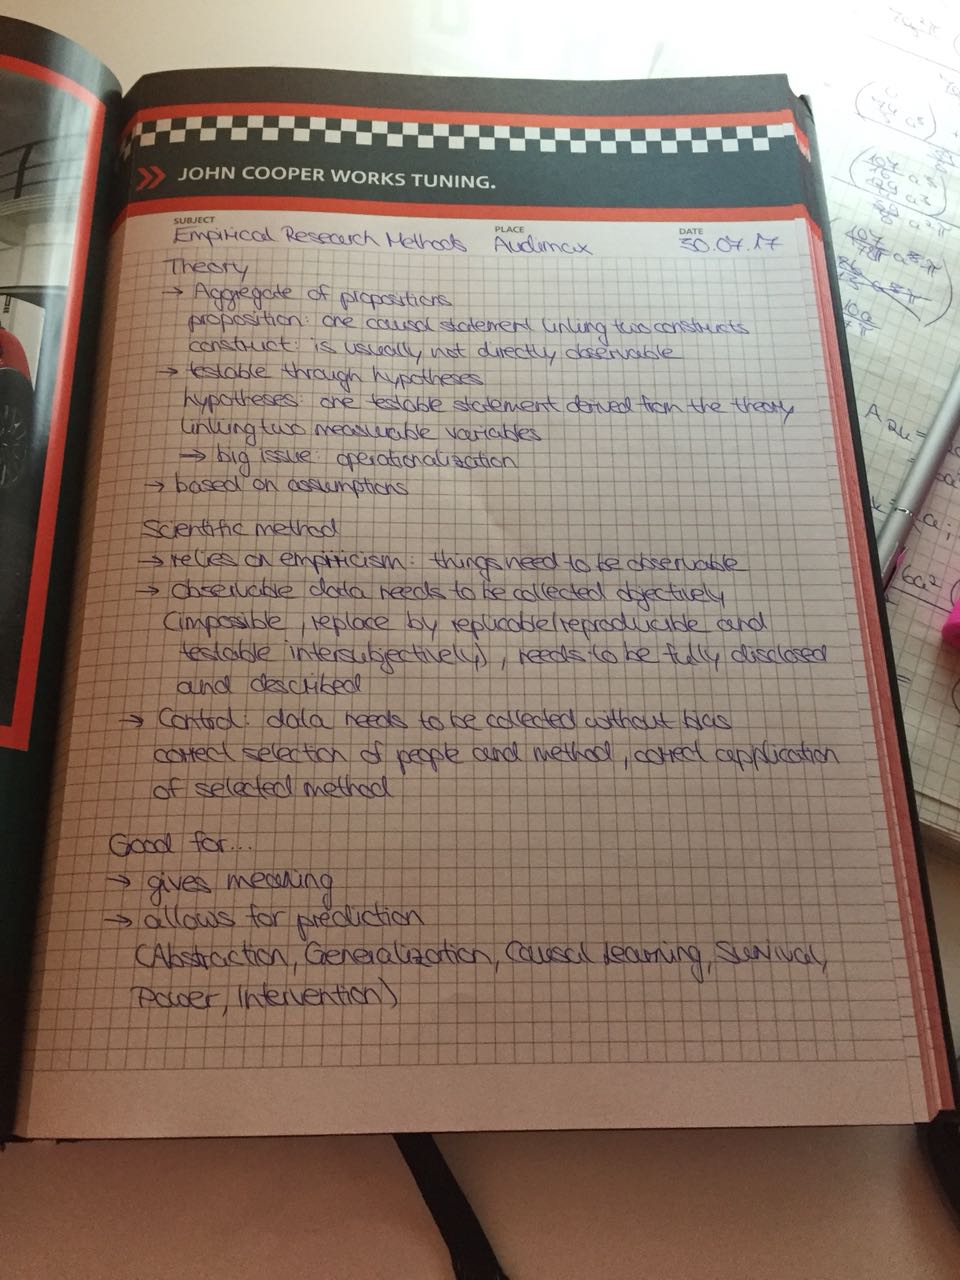 JOHN COOPER WORKS TUNING.
SUBJECT PLACE DATE
Empirical Research Methods Audimax 30.07.17
Theory
→ Aggregate of propositions
proposition: one causal statement linking two constructs
construct: is usually not directly observable
→ testable through hypotheses
hypotheses: one testable statement derived from the theory
linking two measurable variables
→ big issue: operationalization
→ based on assumptions
Scientific method
→ relies on empiricism: things need to be observable
→ observable data needs to be collected objectively
(impossible, replace by replicable/reproducible and
testable intersubjectively), needs to be fully disclosed
and described
→ Control: data needs to be collected without bias
correct selection of people and method, correct application
of selected method
Good for...
→ gives meaning
→ allows for prediction
(Abstraction, Generalization, Causal Learning, Survival,
Power, Intervention)